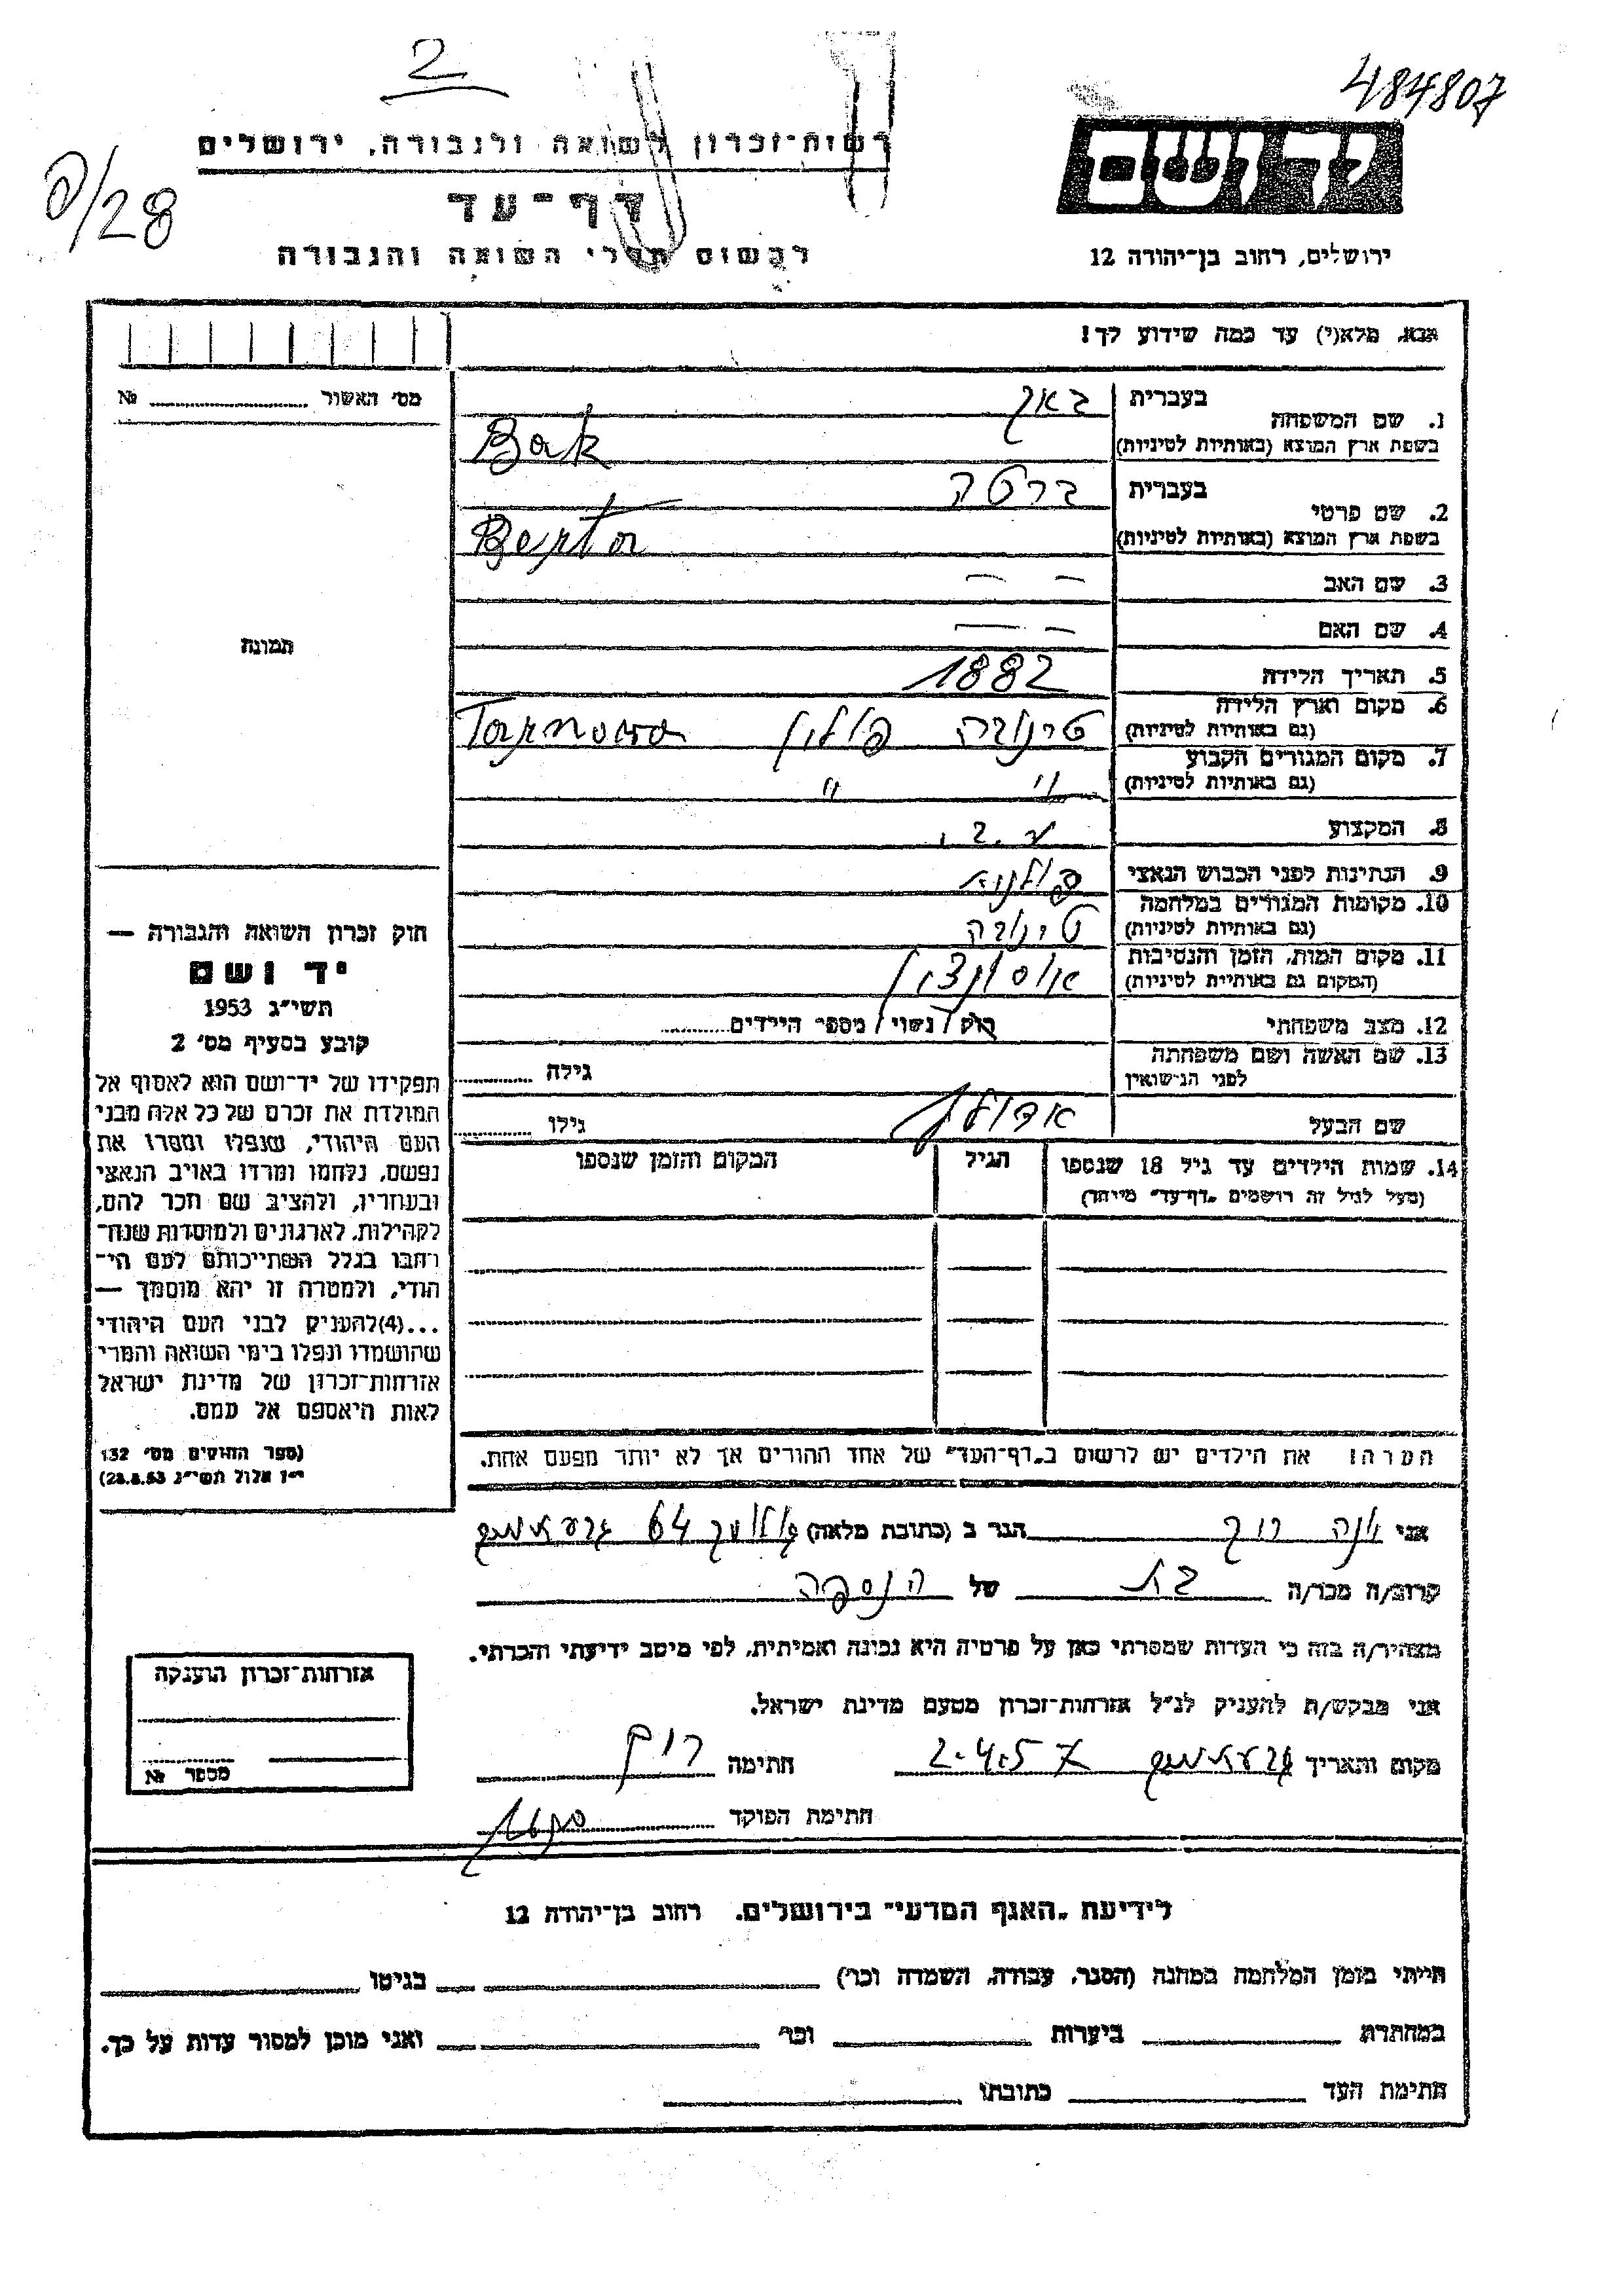 2
484807
רשות־זכרון לשואה ולגבורה, ירושלים
יד ושם
/28
דף־עד
לרשום חללי השואה והגבורה
ירושלים, רחוב בן־יהודה 12
אנא, מלא(י) עד כמה שידוע לך!
מס׳ האשור № 
1. שם המשפחה
בעברית באק
בשפת ארץ המוצא (באותיות לטיניות) Bak
2. שם פרטי
בעברית ברטה
בשפת ארץ המוצא (באותיות לטיניות) Berta
3. שם האב — —
4. שם האם — —
תמונה
5. תאריך הלידה 1882
6. מקום וארץ הלידה
(גם באותיות לטיניות) טרנובה פולין Tarnowa
7. מקום המגורים הקבוע
(גם באותיות לטיניות) " "
8. המקצוע ע.ב.
9. הנתינות לפני הכבוש הנאצי פולנית
10. מקומות המגורים במלחמה
(גם באותיות לטיניות) טרנובה
11. מקום המות, הזמן והנסיבות
(המקום גם באותיות לטיניות)
12. מצב משפחתי רוק / נשוי / מספר הילדים
13. שם האשה ושם משפחתה
לפני הנישואין גילה
שם הבעל אדולף גילו
14. שמות הילדים עד גיל 18 שנספו
(מעל לגיל זה רושמים „דף־עד" מיוחד)
הגיל
המקום והזמן שנספו
חוק זכרון השואה והגבורה —
יד ושם
תשי״ג 1953
קובע בסעיף מס׳ 2
תפקידו של יד־ושם הוא לאסוף אל
המולדת את זכרם של כל אלה מבני
העם היהודי, שנפלו ומסרו את
נפשם, נלחמו ומרדו באויב הנאצי
ובעוזריו, ולהציב שם וזכר להם,
לקהילות, לארגונים ולמוסדות שנח־
רהבו בגלל השתייכותם לעם הי־
הודי, ולמטרה זו יהא מוסמך —
...(4)להעניק לבני העם היהודי
שהושמדו ונפלו בימי השואה והמרי
אזרחות־זכרון של מדינת ישראל
לאות היאספם אל עמם.
(ספר החוקים מס׳ 132
י״ז אלול תשי״ג 28.8.53)
הערה: את הילדים יש לרשום ב„דף־העד" של אחד ההורים אך לא יותר מפעם אחת.
אני הגר ב (כתובת מלאה) 64
קרוב/ה מכר/ה בת של הנספה
מצהיר/ה בזה כי העדות שמסרתי כאן על פרטיה היא נכונה ואמיתית, לפי מיטב ידיעתי והכרתי.
אני מבקש/ת להעניק לנ״ל אזרחות־זכרון מטעם מדינת ישראל.
מקום ותאריך 2.4.57 חתימה
חתימת הפוקד
אזרחות־זכרון הוענקה
מספר №
לידיעת „האגף המדעי" בירושלים, רחוב בן־יהודה 12
הייתי בזמן המלחמה במחנה (הסגר, עבודה, השמדה וכו׳) בגיטו
במחתרת ביערות וכו׳ ואני מוכן למסור עדות על כך.
חתימת העד כתובתו